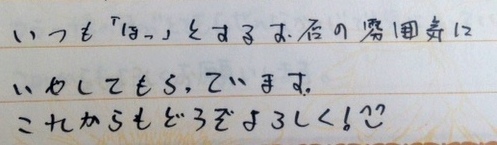 いつも「ほっ」とするお店の雰囲気に
いやしてもらっています。
これからもどうぞよろしく!